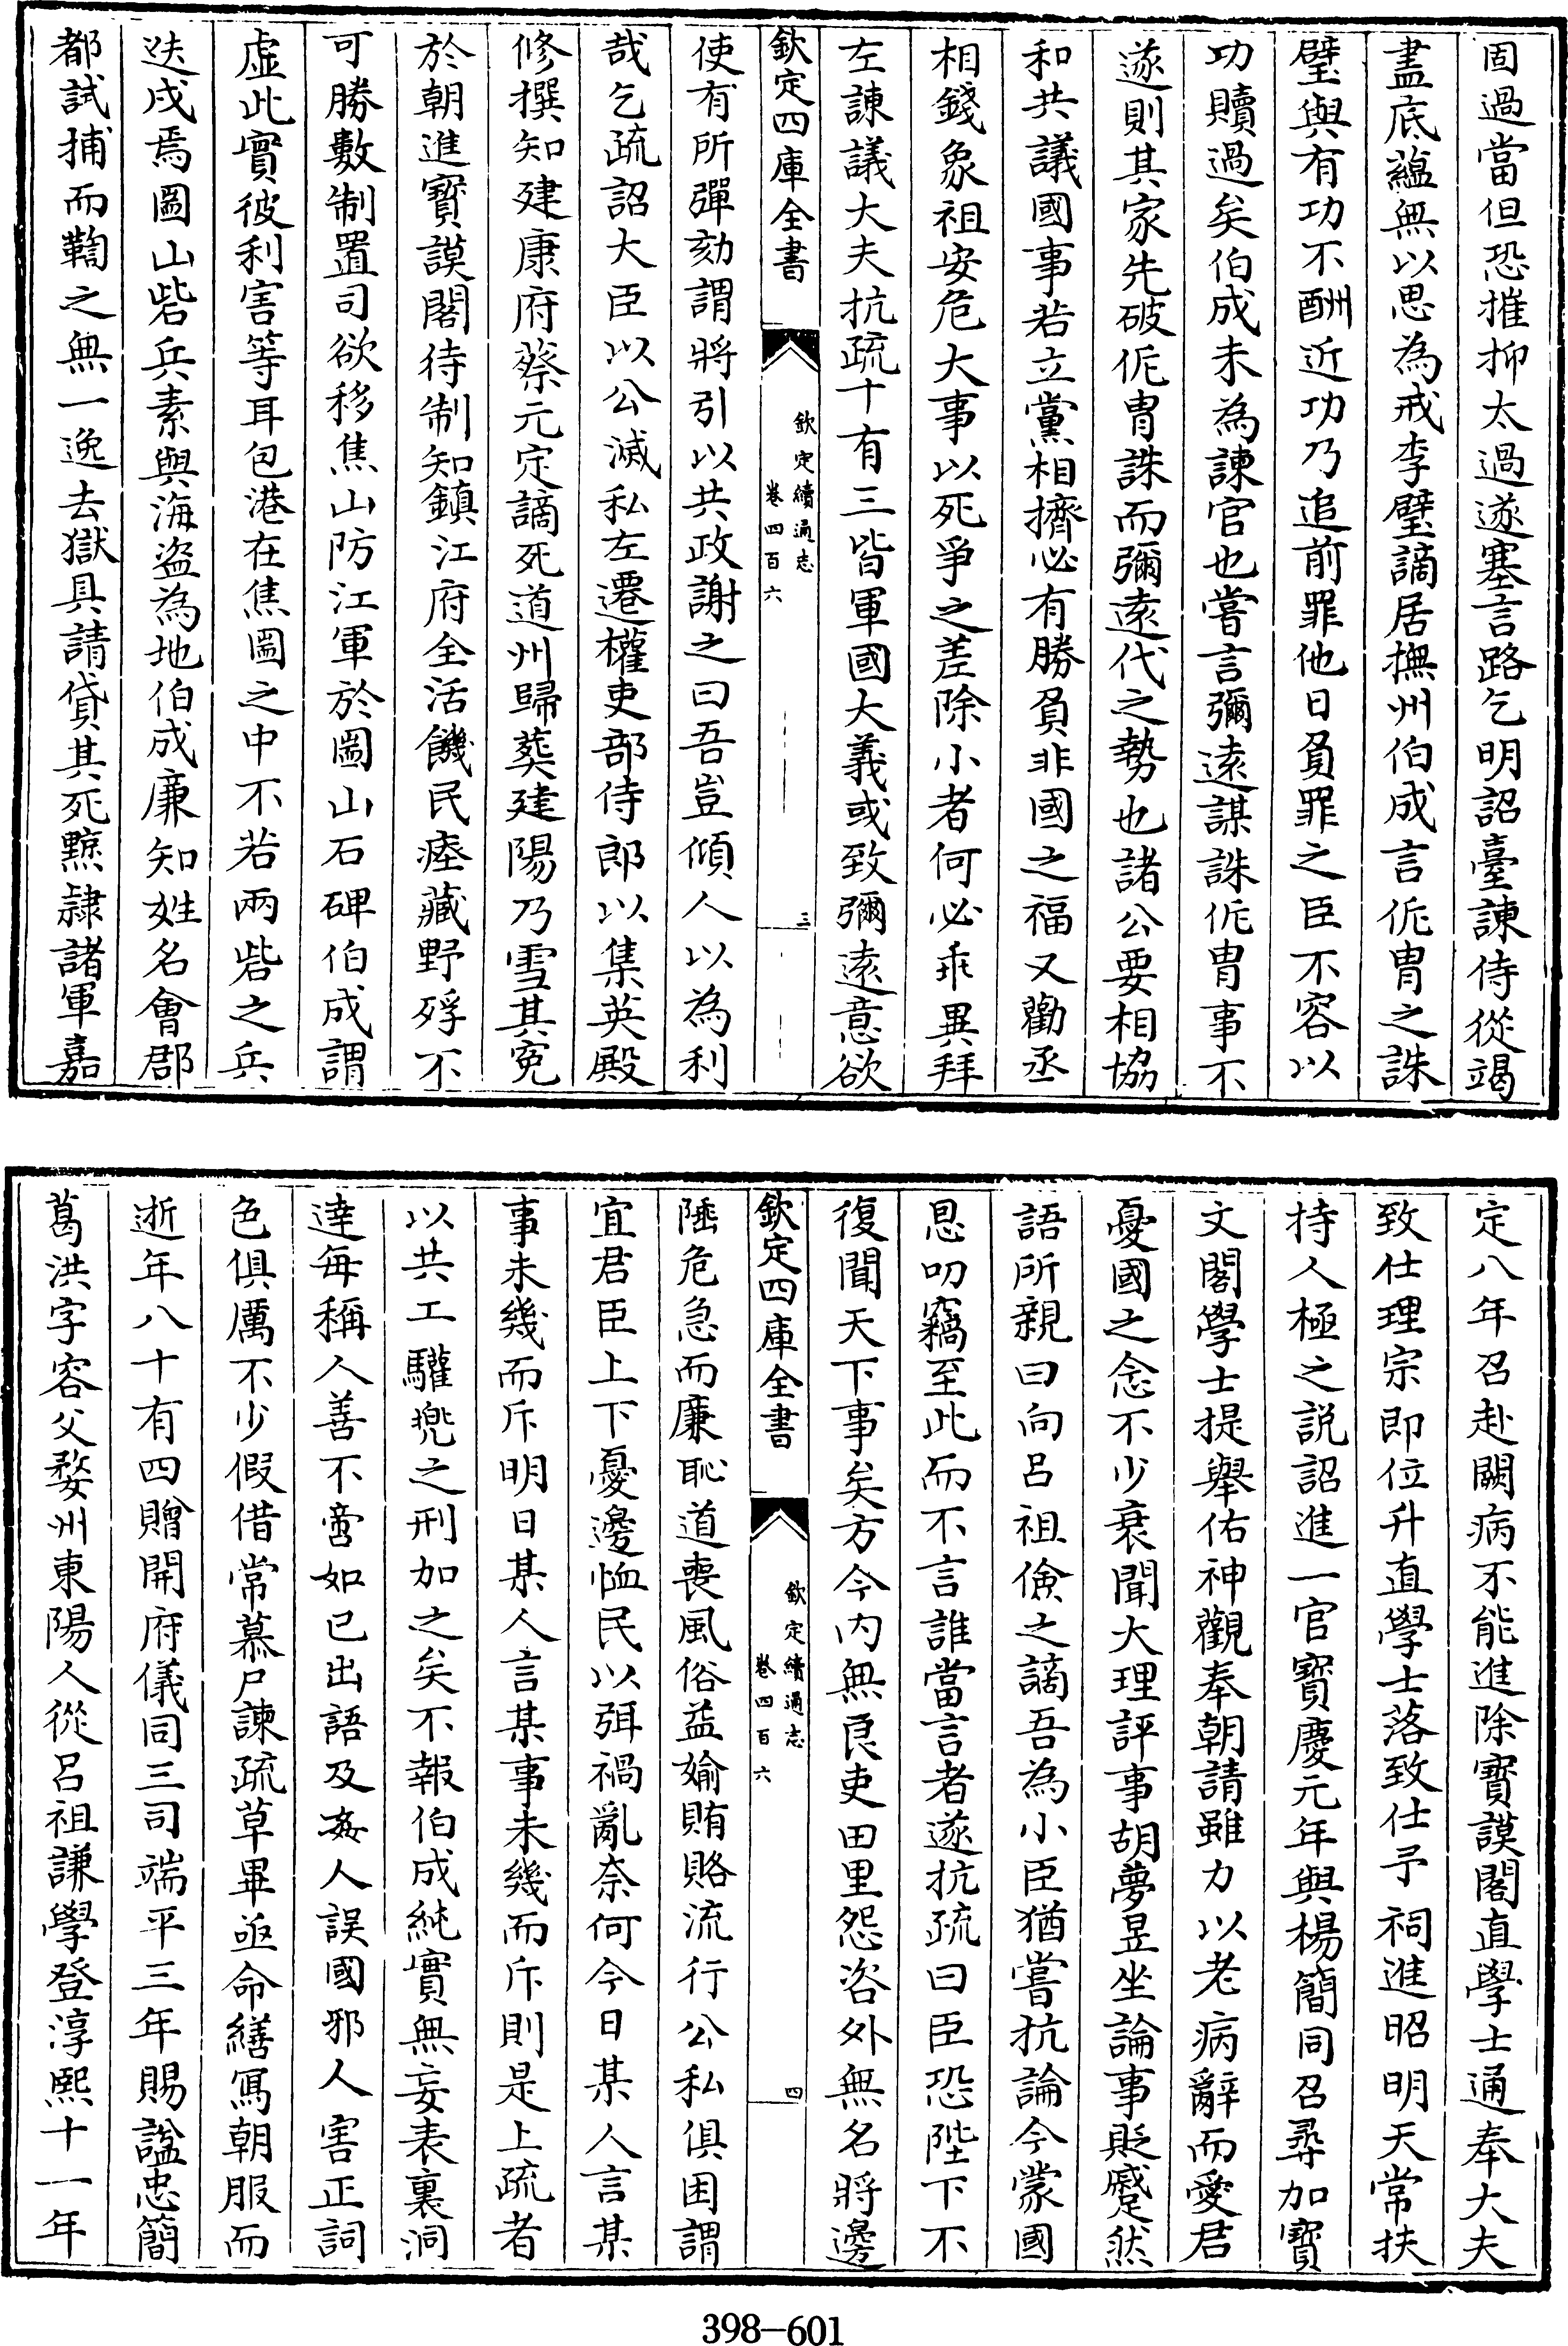 固過當但恐摧抑太過遂塞言路乞明詔臺諫侍從竭
盡底蘊無以思為戒李璧謫居撫州伯成言侂胄之誅
璧與有功不酬近功乃追前罪他日負罪之臣不容以
功贖過矣伯成未為諫官也嘗言彌遠謀誅侂胄事不
遂則其家先破侂胄誅而彌遠代之勢也諸公要相協
和共議國事若立黨相擠必有勝負非國之福又勸丞
相錢象祖安危大事以死爭之差除小者何必乖異拜
左諫議大夫抗疏十有三皆軍國大義或致彌遠意欲
欽定四庫全書
欽定續通志
卷四百六
三
使有所彈劾謂將引以共政謝之曰吾豈傾人以為利
哉乞疏詔大臣以公滅私左遷權吏部侍郎以集英殿
修撰知建康府蔡元定謫死道州歸葬建陽乃雪其冤
於朝進寶謨閣待制知鎮江府全活饑民瘞藏野殍不
可勝數制置司欲移焦山防江軍於圌山石碑伯成謂
虛此實彼利害等耳包港在焦圌之中不若兩砦之兵
迭戍焉圌山砦兵素與海盗為地伯成廉知姓名會郡
都試捕而鞫之無一逸去獄具請貸其死黥隸諸軍嘉
定八年召赴闕病不能進除寶謨閣直學士通奉大夫
致仕理宗即位升直學士落致仕予祠進昭明天常扶
持人極之說詔進一官寶慶元年與楊簡同召尋加寶
文閣學士提舉佑神觀奉朝請雖力以老病辭而愛君
憂國之念不少衰聞大理評事胡夢昱坐論事貶蹙然
語所親曰向呂祖儉之謫吾為小臣猶嘗抗論今蒙國
恩叨竊至此而不言誰當言者遂抗疏曰臣恐陛下不
復聞天下事矣方今内無良吏田里怨咨外無名將邊
欽定四庫全書
欽定續通志
卷四百六
四
陲危急而廉恥道喪風俗益媮賄賂流行公私俱困謂
宜君臣上下憂邊恤民以弭禍亂奈何今日某人言某
事未幾而斥明日某人言某事未幾而斥則是上疏者
以共工驩兜之刑加之矣不報伯成純實無妄表裏洞
達每稱人善不啻如已出語及姦人誤國邪人害正詞
色俱厲不少假借常慕尸諫疏草畢亟命繕寫朝服而
逝年八十有四贈開府儀同三司端平三年賜諡忠簡
葛洪字容父婺州東陽人從呂祖謙學登淳熙十一年
398—601